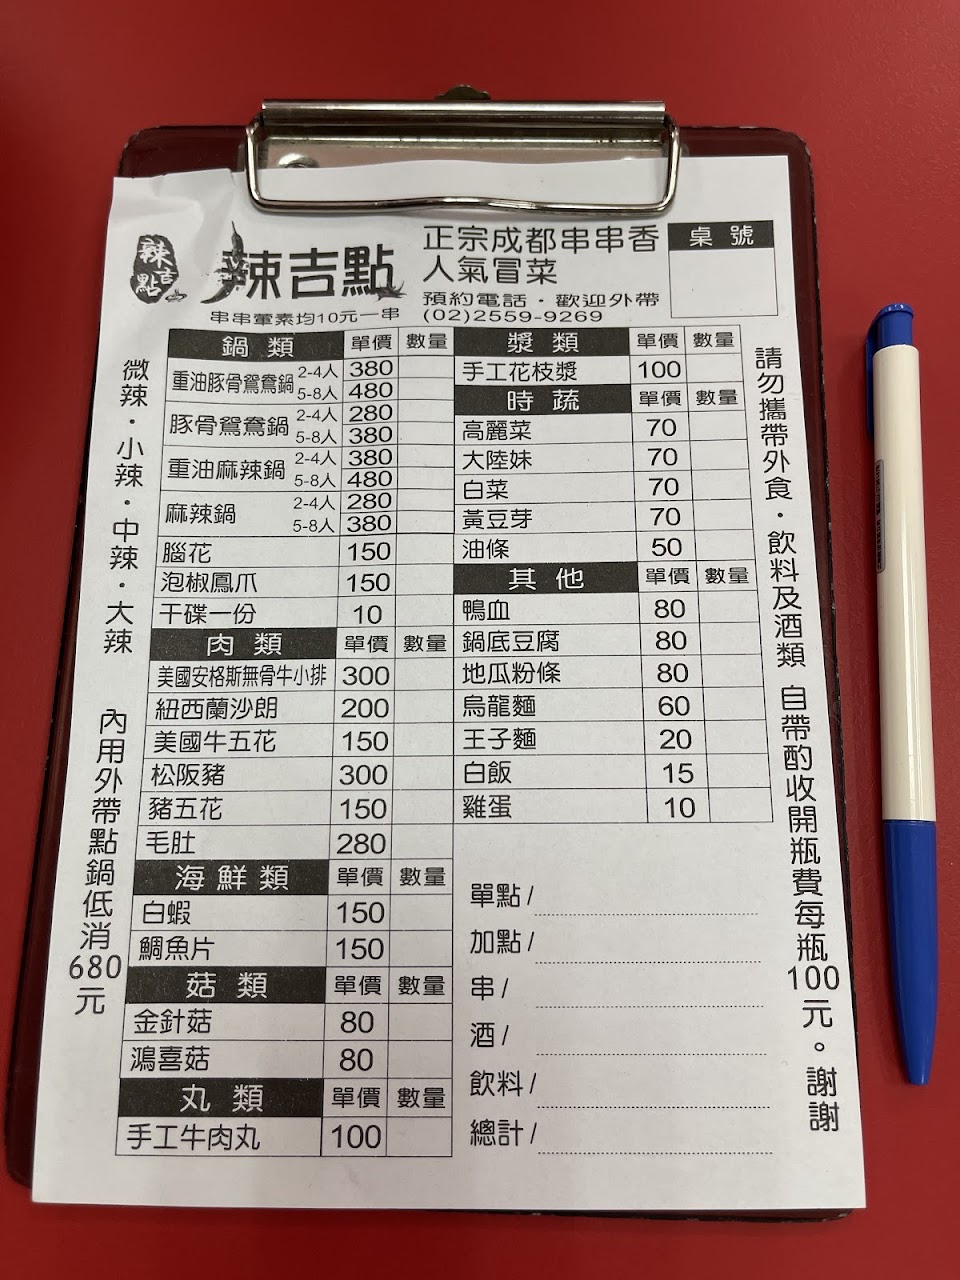 辣吉點
辣吉點
串串葷素均10元一串
正宗成都串串香
人氣冒菜
預約電話・歡迎外帶
(02)2559-9269
桌號
微辣・小辣・中辣・大辣
內用外帶點鍋低消680元
鍋類 單價 數量
重油豚骨鴛鴦鍋 2-4人 380
5-8人 480
豚骨鴛鴦鍋 2-4人 280
5-8人 380
重油麻辣鍋 2-4人 380
5-8人 480
麻辣鍋 2-4人 280
5-8人 380
腦花 150
泡椒鳳爪 150
干碟一份 10
肉類 單價 數量
美國安格斯無骨牛小排 300
紐西蘭沙朗 200
美國牛五花 150
松阪豬 300
豬五花 150
毛肚 280
海鮮類 單價 數量
白蝦 150
鯛魚片 150
菇類 單價 數量
金針菇 80
鴻喜菇 80
丸類 單價 數量
手工牛肉丸 100
漿類 單價 數量
手工花枝漿 100
時蔬 單價 數量
高麗菜 70
大陸妹 70
白菜 70
黃豆芽 70
油條 50
其他 單價 數量
鴨血 80
鍋底豆腐 80
地瓜粉條 80
烏龍麵 60
王子麵 20
白飯 15
雞蛋 10
單點/
加點/
串/
酒/
飲料/
總計/
請勿攜帶外食・飲料及酒類 自帶酌收開瓶費每瓶100元。謝謝